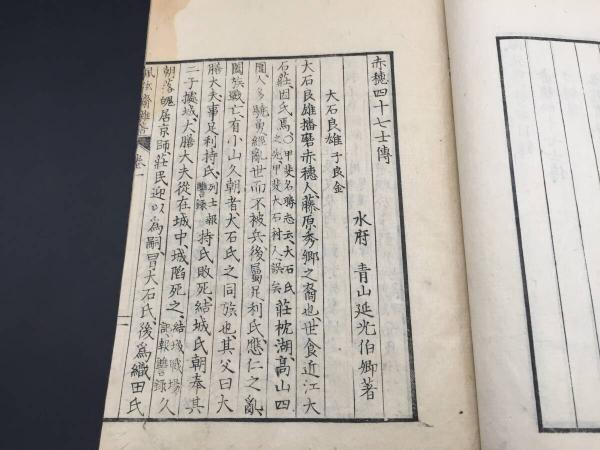 赤穂四十七士傳
水府 青山延光伯卿著
大石良雄 子良金
大石良雄播磨赤穂人藤原秀郷之裔也世食近江大
石莊因氏焉〇甲斐名勝志云大石氏之先甲斐大石村人誤矣莊枕湖高山四
圍人多驍勇經亂世而不被兵後屬足利氏應仁之亂
闔族戰亡有小山久朝者大石氏之同族也其父曰大
膳大夫事足利持氏列士報讐錄持氏敗死結城氏朝奉其
二子據城大膳大夫從在城中城陷死之結城戰場記報讐錄久
朝落魄居京師莊民迎以爲嗣冒大石氏後爲織田氏
佩弦齋雜著 卷一 一